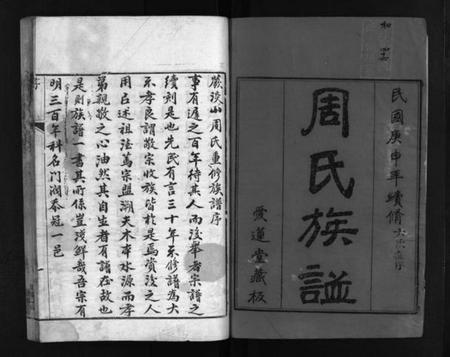 民國庚申年續脩
周氏族譜
愛蓮堂藏板
周氏重修族譜序
事有遲之百年待其人而後舉者宗譜之
續刻是也先民有言三十年不修譜為大
不孝良謂敬宗收族皆於是焉資後之人
用以述祖法為宗盟溯夫木本水源而孝
弟親敬之心油然其自生者有譜在故也
是則族譜一書其所係豈淺鮮哉吾宗有
明三百年科名門閥冠一邑
序